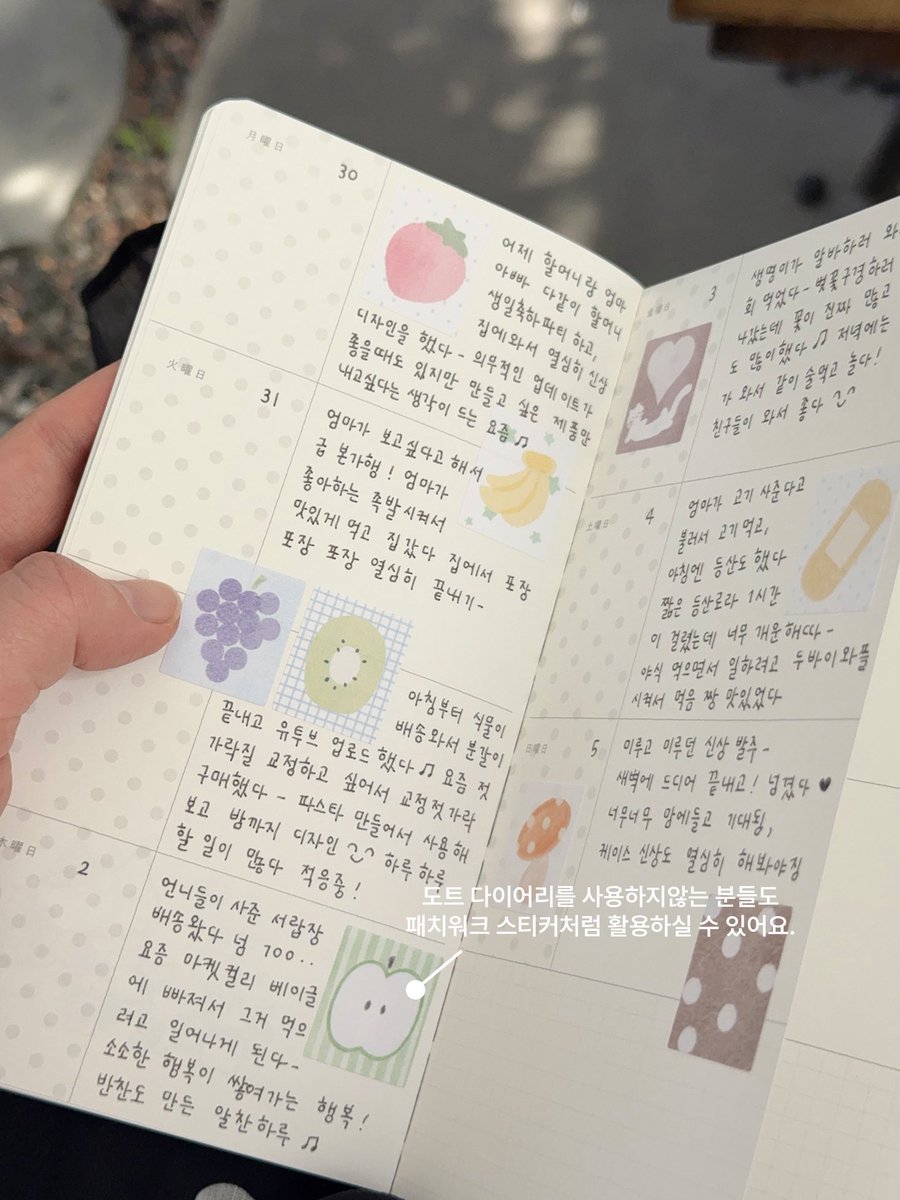 月曜日
30
어제 할머니랑 엄마
아빠 다같이 할머니
생일축하파티 하고,
집에와서 열심히 신상
디자인을 했다 - 의무적인 업데이트가
좋을때도 있지만 만들고 싶은 제품만
내고싶다는 생각이 드는 요즘 ♫
火曜日
31
엄마가 보고싶다고 해서
급 본가행! 엄마가
좋아하는 족발시켜서
맛있게 먹고 집갔다 집에서 포장
포장 포장 열심히 끝내기-
아침부터 식물이
배송와서 분갈이
끝내고 유투브 업로드 했다 ♫ 요즘 젓
가락질 교정하고 싶어서 교정젓가락
구매했다 - 파스타 만들어서 사용해
보고 밤까지 디자인 하루하루
할 일이 많다 적응중!
木曜日
2
언니들이 사준 서랍장
배송왔다 넘
요즘 마켓컬리 베이글
에 빠져서 그거 먹으
려고 일어나게 된다-
소소한 행복이 쌓여가는 행복!
반찬도 만든 알찬하루 ♫
金曜日
3
생명이가 알바하러 와
회 먹었다 - 벚꽃구경하러
나갔는데 꽃이 진짜 많고
도 많이했다 ♫ 저녁에는
가 와서 같이 술먹고 놀다!
친구들이 와서 좋다
土曜日
4
엄마가 고기 사준다고
불러서 고기먹고,
아침엔 등산도 했다
짧은 등산로라 1시간
이 걸렸는데 너무 개운해따-
야식 먹으면서 일하려고 두바이와플
시켜서 먹음 짱 맛있었다
日曜日
5
미루고 미루던 신상 발주-
새벽에 드디어 끝내고! 넘겼다 ♥
너무너무 맘에들고 기대됨,
케이스 신상도 열심히 해봐야징
도트 다이어리를 사용하지않는 분들도
패치워크 스티커처럼 활용하실 수 있어요.